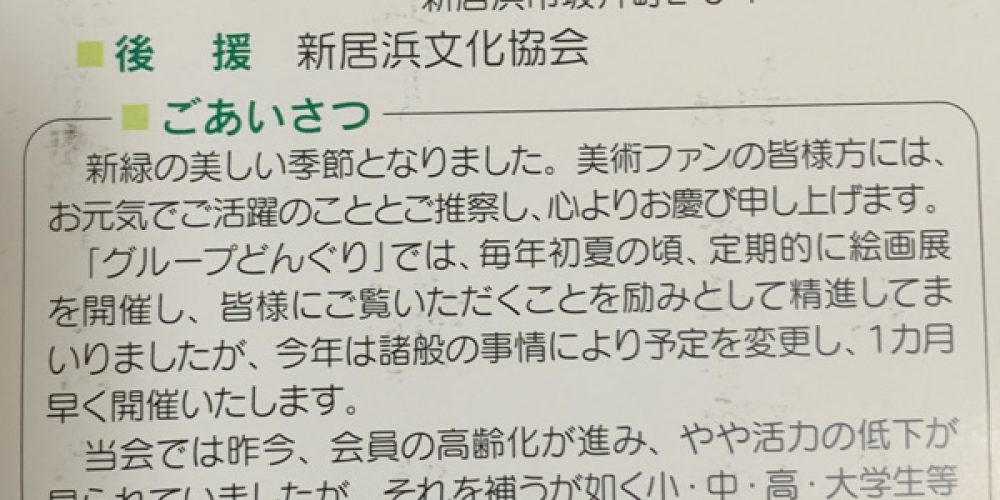 新居浜市坂井町2-3-
■後 援 新居浜文化協会
■ごあいさつ
新緑の美しい季節となりました。美術ファンの皆様方には、
お元気でご活躍のこととご推察し、心よりお慶び申し上げます。
「グループどんぐり」では、毎年初夏の頃、定期的に絵画展
を開催し、皆様にご覧いただくことを励みとして精進してま
いりましたが、今年は諸般の事情により予定を変更し、1カ月
早く開催いたします。
当会では昨今、会員の高齢化が進み、やや活力の低下が
見られていましたが、それを補うが如く小・中・高・大学生等